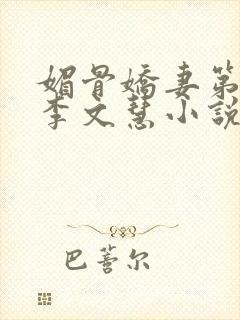 媚骨嬌妻第
李文慧小說
巴蕾尔